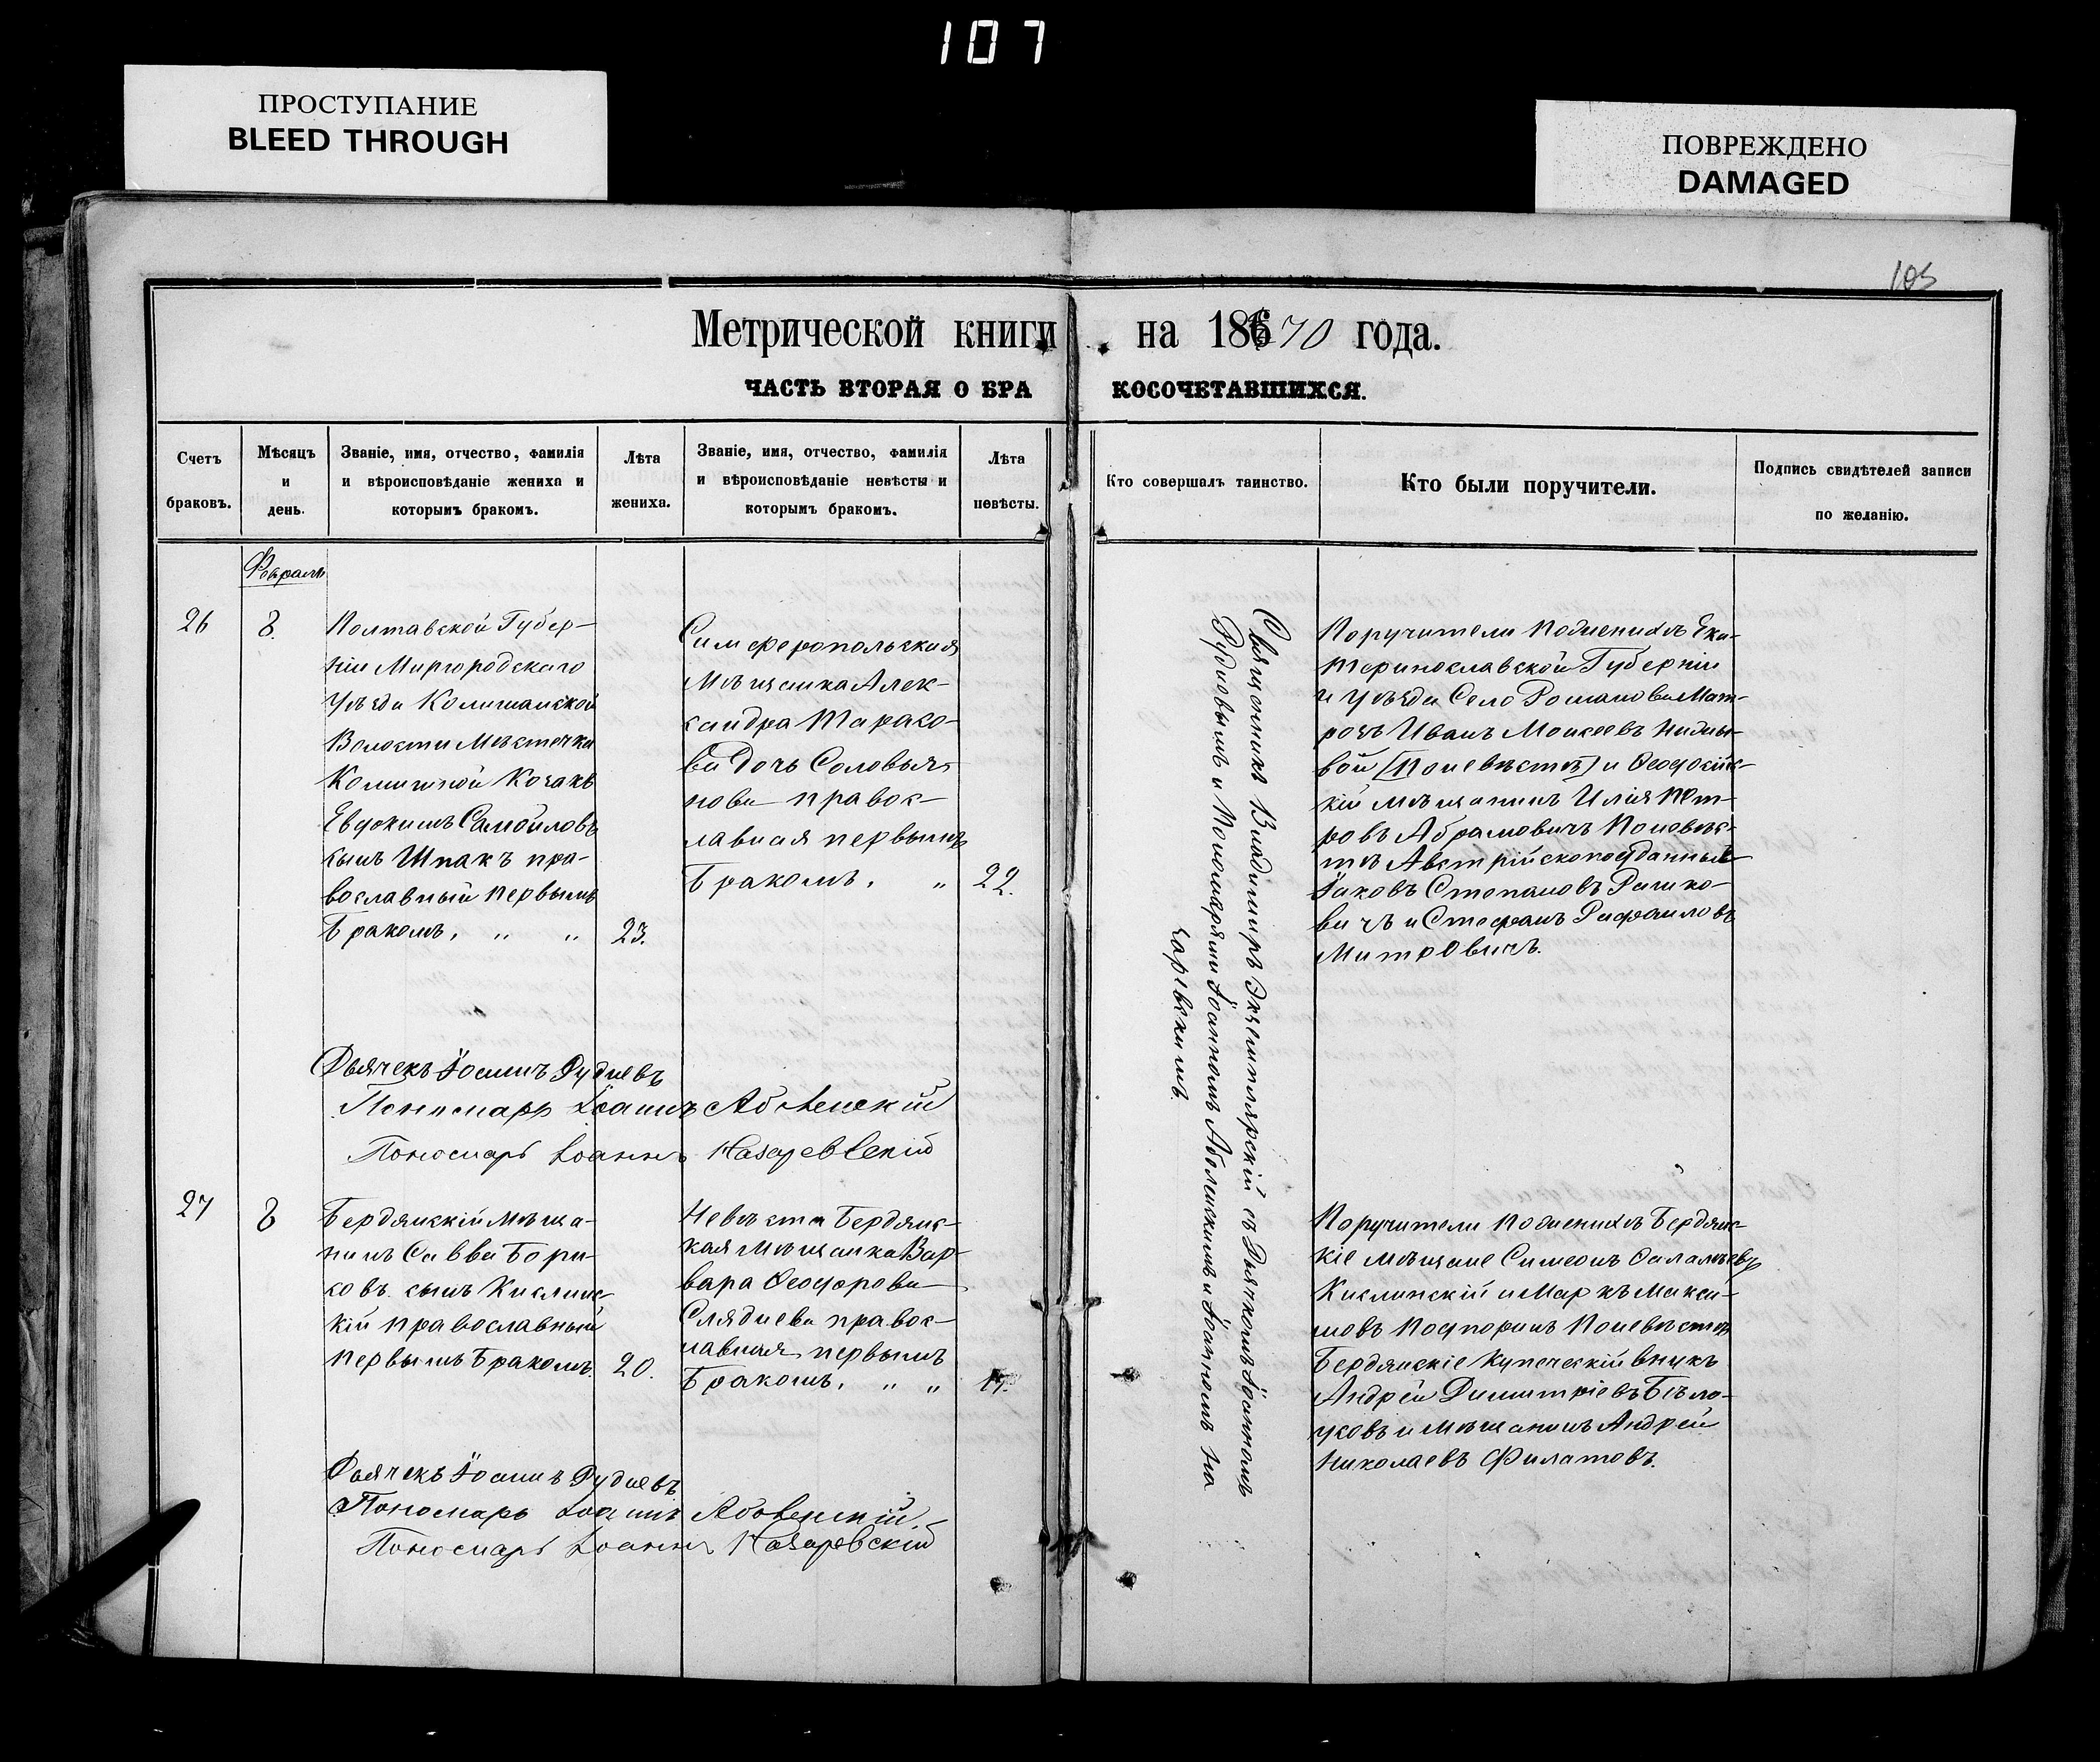 107
ПРОСТУПАНИЕ
BLEED THROUGH
ПОВРЕЖДЕНО
DAMAGED
105
Метрической книги на 186 70 года.
ЧАСТЬ ВТОРАЯ О БРАКОСОЧЕТАВШИХСЯ.
Счетъ
браковъ.
Мѣсяцъ
и
день.
Званіе, имя, отчество, фамилія
и вѣроисповѣданіе жениха и
которымъ бракомъ.
Лѣта
жениха.
Званіе, имя, отчество, фамилія
и вѣроисповѣданіе невѣсты и
которымъ бракомъ.
Лѣта
невѣсты.
Кто совершалъ таинство.
Кто были поручители.
Подпись свидѣтелей записи
по желанію.
Февраль
26
8.
Полтавской Губер-
ніи Миргородскаго
Уѣзда Комишанской
Волости Мѣстечка
Комишной Козакъ
Евдокимъ Самойловъ
сынъ Шпакъ пра-
вославный первымъ
бракомъ. " "
23.
Симферопольская
Мѣщанка Алек-
сандра Тарасо-
ва дочь Соловья-
нова правос-
лавная первымъ
бракомъ. "
22.
Священникъ Владимиръ Экземплярскій съ Дьячкомъ Іоанномъ
Рудневымъ и Пономарями Іоанномъ Аболенскимъ и Іоанномъ На
заревскимъ.
Поручители по женихѣ Ека-
теринославской Губерніи
и Уѣзда Село Романова Мат-
розъ Иванъ Моисеевъ
вой (По невѣстѣ) и Ѳеодосійс-
кій мѣщанинъ Илія Пет-
ровъ Абрамовичъ По невѣс-
тѣ Австрійскоподданные
Іаковъ Степановъ Рашко-
вичъ и Стефанъ Рафаиловъ
Митровичъ.
Дьячекъ Іоаннъ Рудневъ
Пономарь Іоаннъ Аболенскій
Пономарь Іоаннъ Назаревскій
27
8
Бердянскій Мѣща-
нинъ Савва Бори-
совъ сынъ Кислинс-
кій православный
первымъ бракомъ.
20.
Невѣста Бердянс-
кая Мѣщанка Вар-
вара Ѳеодорова
Слядиева правос-
лавная первымъ
бракомъ. " "
Поручители по женихѣ Бердянс-
кіе мѣщане Симеонъ
Кислинскій и Маркъ Макси-
мовъ Подпоринъ По невѣстѣ
Бердянскіе Купеческій внукъ
Андрей Димитріевъ Бѣло-
усовъ и мѣщанинъ Андрей
Николаевъ Филатовъ.
Дьячекъ Іоаннъ Рудневъ
Пономарь Іоаннъ Аболенскій
Пономарь Іоаннъ Назаревскій